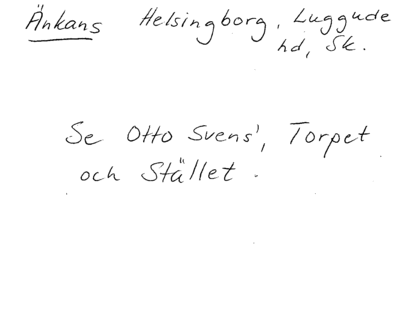 Änkans Helsingborg, Luggude
hd, Sk.
Se Otto Svens', Torpet
och Stället.